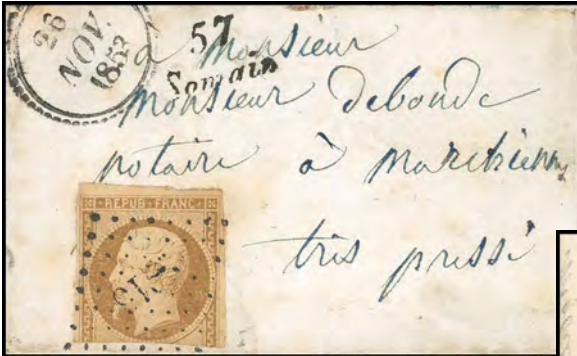 26
NOV.
1853
57
Somain
a Monsieur
Monsieur debonde
notaire à Marchiennes
très pressé
REPUB. FRANC.